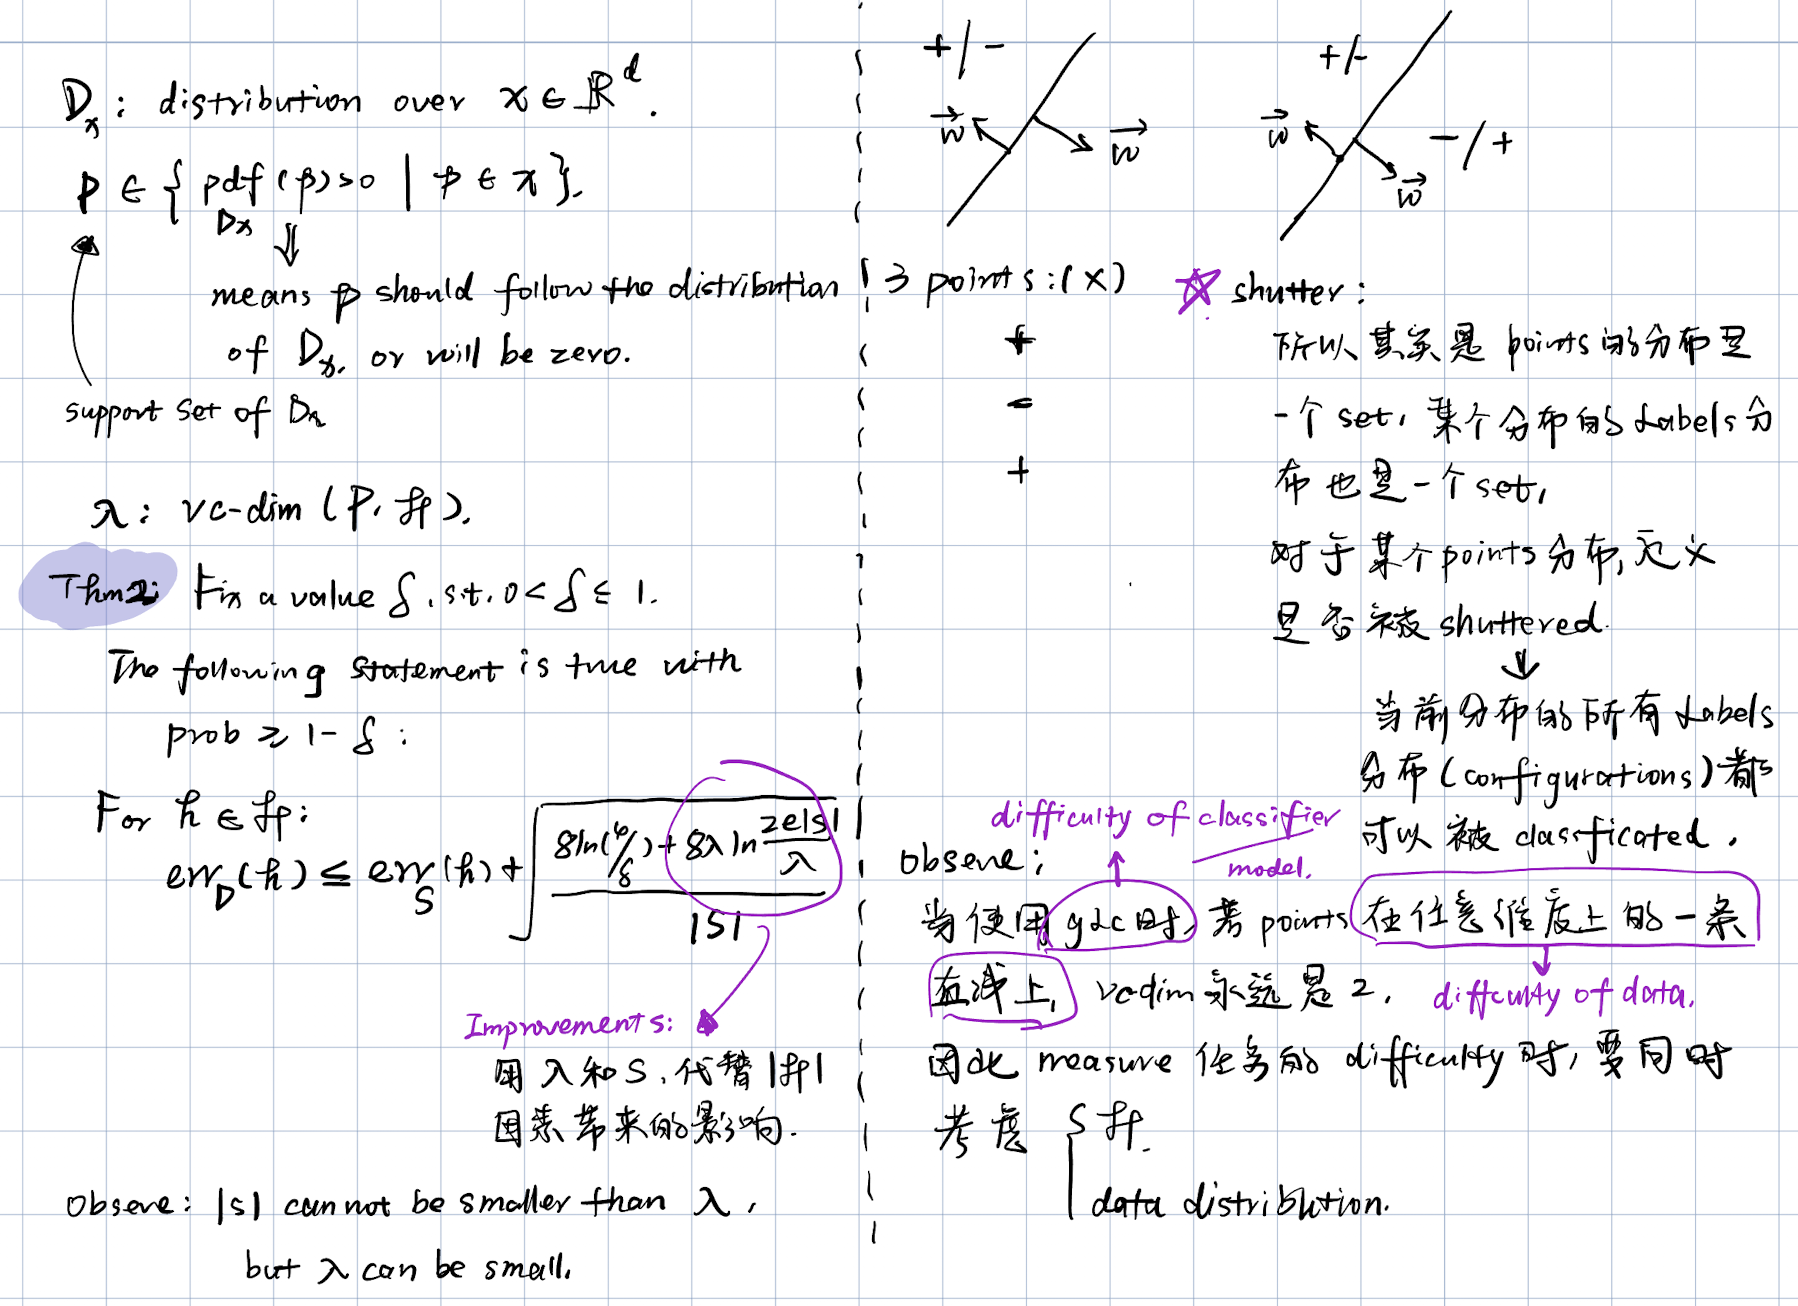 D_x : distribution over x ∈ ℝ^d.
P ∈ { pdf_{D_x}(p) > 0 | p ∈ x }.
⇓
means p should follow the distribution
of D_x, or will be zero.
support set of D_x
λ: vc-dim (P, ℋ).
Thm2: Fix a value δ, s.t. 0 < δ ≤ 1.
The following statement is true with
prob ≥ 1 - δ :
For h ∈ ℋ:
err_D(h) ≤ err_S(h) + √((8ln(4/δ) + 8λ ln(2e|S|/λ)) / |S|)
Improvements:
用 λ和S, 代替 |ℋ|
因素带来的影响.
Obseve: |s| cannot be smaller than λ,
but λ can be small.
+/-
w→
w→
+/-
w→
-/+
w→
3 points: (×)
+
-
+
☆ shutter:
所以其实是 points的分布是
一个 set, 某个分布的 Labels 分
布也是一个 set,
对于某个 points 分布, 定义
是否被 shuttered.
↓
当前分布的所有 Labels
分布 (configurations) 都
可以被 classficated.
difficulty of classifier
model.
Obseve:
当使用 gLC时, 若 points 在任意维度上的一条
直线上, vc-dim 永远是 2.
diffculty of data.
因此 measure 任务的 difficulty 时, 要同时
考虑 S ℋ.
data distribution.